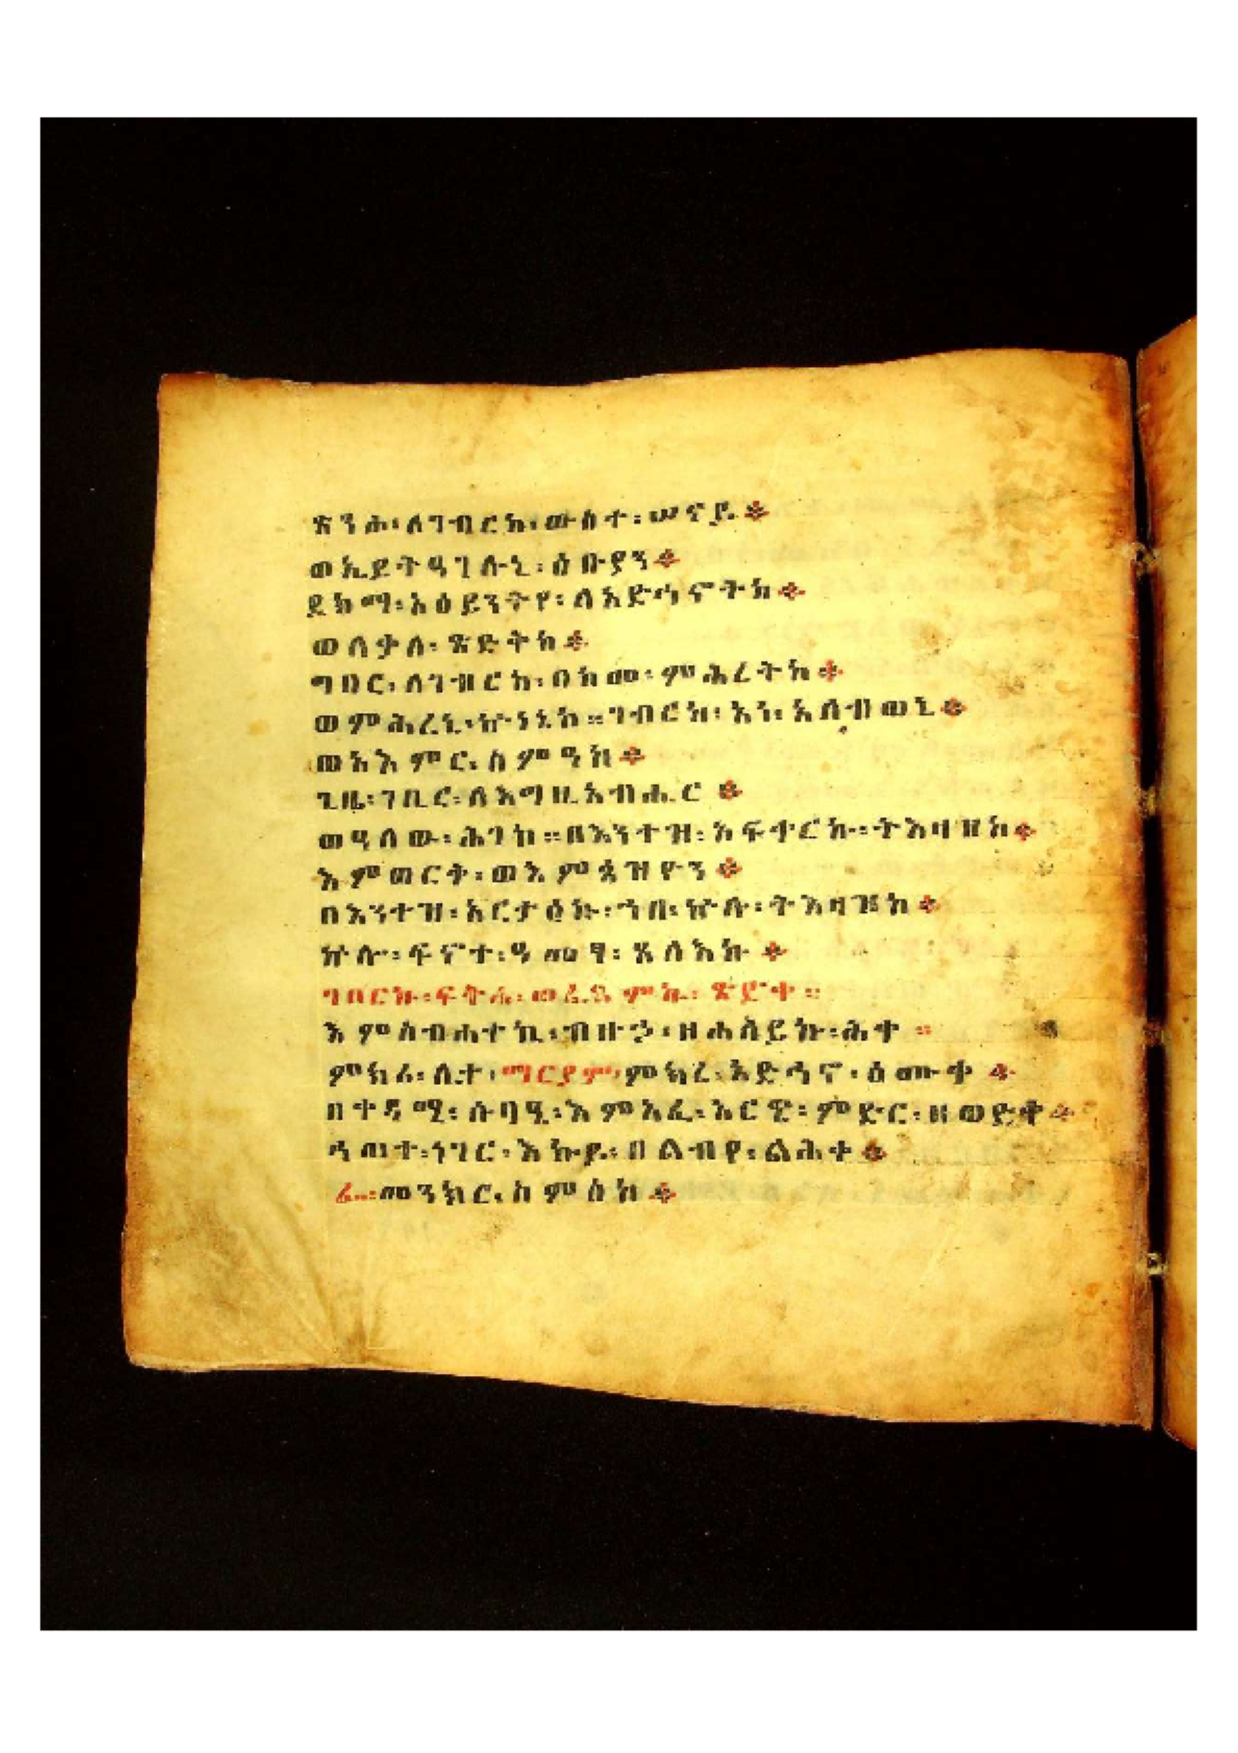 ጽንሖ፡ ለገብርከ፡ ውስተ፡ ሠናይ ።
ወኢይትዓገሉኒ፡ ዕቡያን ።
ደክማ፡ አዕይንትየ፡ ለአድኅኖትከ ።
ወለቃለ፡ ጽድቅከ ።
ግበር፡ ለገብርከ፡ በከመ፡ ምሕረትከ ።
ወምሕረኒ፡ ኵነኔከ ። ገብርከ፡ አነ፡ አለብወኒ ።
ወአእምር፡ ስምዓከ ።
ጊዜ፡ ገቢር፡ ለእግዚአብሔር ።
ወዓለው፡ ሕገከ ። በእንተዝ፡ አፍቀርኩ፡ ትእዛዘከ ።
እምወርቅ፡ ወእምጳዝዮን ።
በእንተዝ፡ አርታዕኩ፡ ኀበ፡ ኵሉ፡ ትእዛዝከ ።
ኵሎ፡ ፍኖተ፡ ዓመፃ፡ ጸላእኩ ።
ገበርኩ፡ ፍትሐ፡ ወፈጸምኩ፡ ጽድቀ ።
እምስብሐተኪ፡ ብዙኃ፡ ዘሐለይኩ፡ ሕቀ ።
ምክረ፡ ሊተ፡ ማርያም፡ ምክረ፡ አድኅኖ፡ ዕሙቀ ።
በቀዳሚ፡ ሱባዔ፡ እምአፈ፡ አርዌ፡ ምድር፡ ዘወድቀ ።
ሓመተ፡ ነገር፡ እኩይ፡ በልብየ፡ ልሕቀ ።
ፈ፡ መንክር፡ ስምዕከ ።